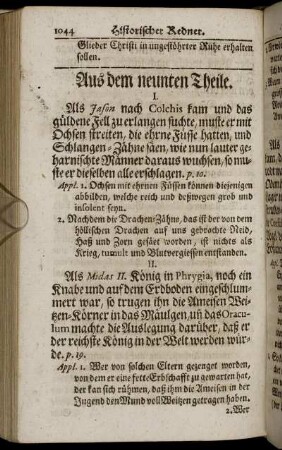 1044 Historischer Redner.
Glieder Christi in ungestöhrter Ruhe erhalten
sollen.
Aus dem neunten Theile.
I.
Als Jason nach Colchis kam und das
güldene Fell zu erlangen suchte, muste er mit
Ochsen streiten, die ehrne Füsse hatten, und
Schlangen-Zähne säen, wie nun lauter ge-
harnischte Männer daraus wuchsen, so mu-
ste er dieselben alle erschlagen. p. 10.
Appl. 1. Ochsen mit ehrnen Füssen können diejenigen
abbilden, welche reich und deßwegen grob und
insolent seyn.
2. Nachdem die Drachen-Zähne, das ist der von dem
höllischen Drachen auf uns gebrachte Neid,
Haß und Zorn gesäet worden, ist nichts als
Krieg, tumult und Blutvergiessen entstanden.
II.
Als Midas II. König in Phrygia, noch ein
Knabe und auf dem Erdboden eingeschlum-
mert war, so trugen ihn die Ameisen Wei-
tzen-Körner in das Mäulgen, uñ das Oracu-
lum machte die Auslegung darüber, daß er
der reichste König in der Welt werden wür-
de. p. 19.
Appl. 1. Wer von solchen Eltern gezeuget worden,
von dem er eine fette Erbschafft zu gewarten hat,
der kan sich rühmen, daß ihm die Ameisen in der
Jugend den Mund voll Weitzen getragen haben.
2. Wer